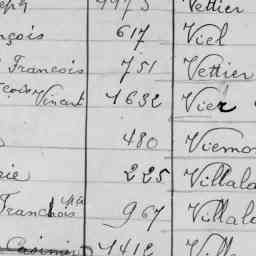 Vettier
nçois 617 Viel
François 751 Vettier
Vincent 1632 Vier
480 Viemo
rie 225 Villala
François 967 Villala
Casimir 1412 Villa